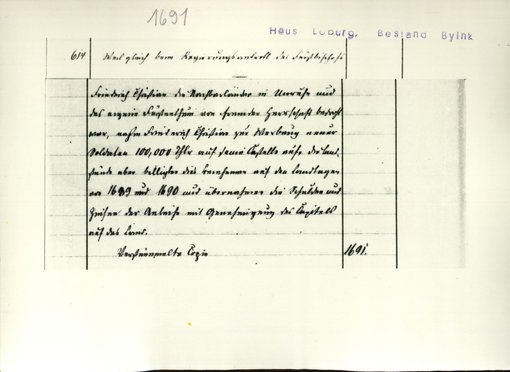 1691
Haus Loburg, Bestand Byink
614 Weil gleich beim Regierungsantritt des Fürstbischofs
Friedrich Christian die Nachbarländer in Unruhe und
das eigene Fürstenthum von fremder Herrschaft bedroht
war, nahm Friedrich Christian zur Werbung neuer
Soldaten 100,000 Thlr auf seine Castelle aufs die Land¬
stände aber billigten die auf den Landtagen
von 1689 und 1690 und übernahmen die Schulden und
Zinsen der Anleihe mit Genehmigung des Capitels
auf das Land.
Verstümmelte Copie 1691.